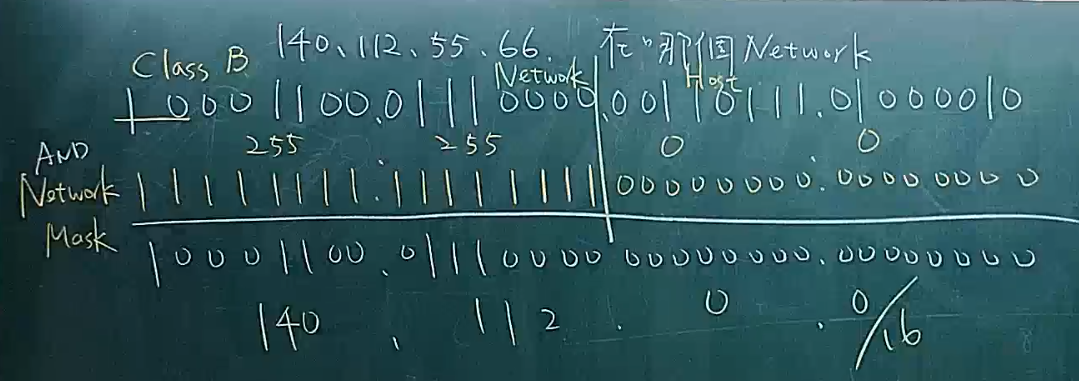 140.112.55.66 在哪個Network
Class B Network Host
10001100.01110000.00110111.01000010
255 . 255 0 . 0
AND
Network 11111111.11111111 00000000.00000000
Mask 10001100.01110000 00000000.00000000
140 . 112 . 0 . 0/16